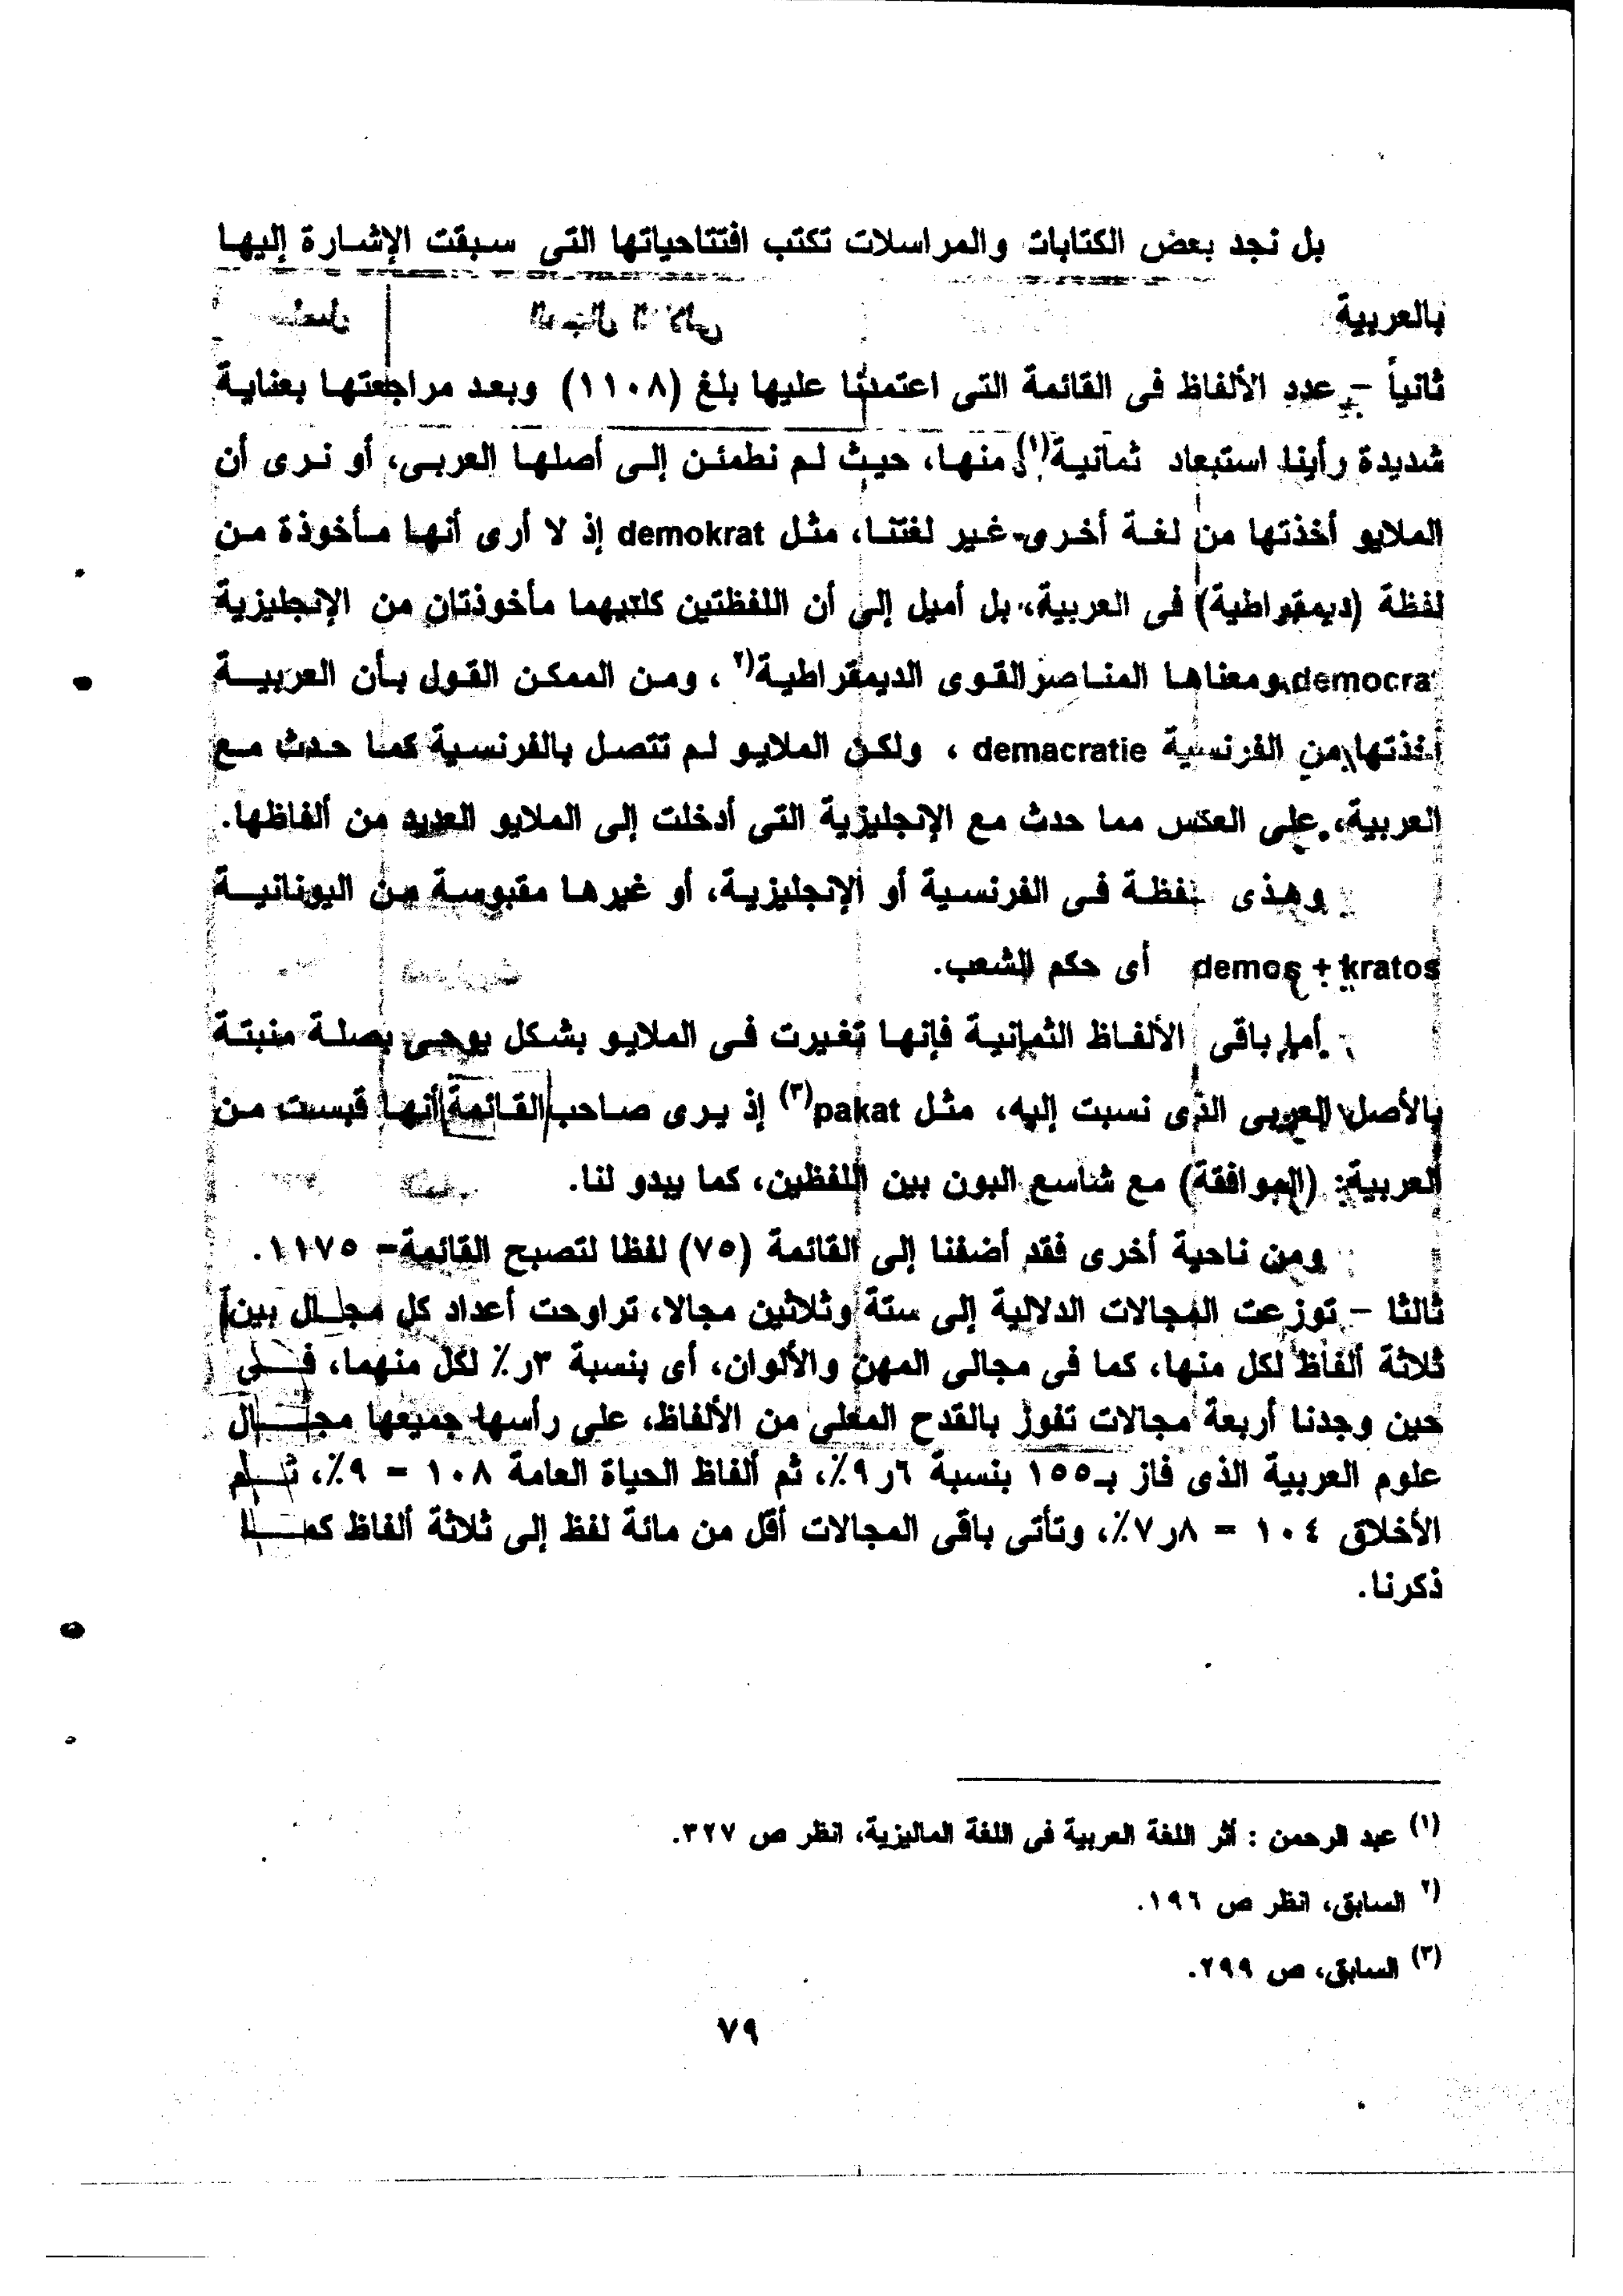 بل نجد بعض الكتابات والمراسلات تكتب افتتاحياتها التى سبقت الإشارة إليها
بالعربية
ثانياً - عدد الألفاظ فى القائمة التى اعتمدنا عليها بلغ (١١٠٨) وبعد مراجعتها بعناية
شديدة رأينا استبعاد ثمانية(١) منها، حيث لم نطمئن إلى أصلها العربى، أو نرى أن
الملايو أخذتها من لغة أخرى غير لغتنا، مثل demokrat إذ لا أرى أنها مأخوذة من
لفظة (ديمقراطية) فى العربية، بل أميل إلى أن اللفظتين كلتيهما مأخوذتان من الإنجليزية
democrat ومعناها المناصر القوى الديمقراطية(٢ ، ومن الممكن القول بأن العربية
أخذتها من الفرنسية demacratie ، ولكن الملايو لم تتصل بالفرنسية كما حدث مع
العربية، على العكس مما حدث مع الإنجليزية التى أدخلت إلى الملايو العديد من ألفاظها.
وهذى لفظة فى الفرنسية أو الإنجليزية، أو غيرها مقبوسة من اليونانية
demos + kratos أى حكم الشعب.
أما باقى الألفاظ الثمانية فإنها تغيرت فى الملايو بشكل يوحى بصلة منبتة
بالأصل العربى الذى نسبت إليه، مثل pakat(٣) إذ يرى صاحب القائمة أنها قبست من
العربية: (الموافقة) مع شاسع البون بين اللفظين، كما يبدو لنا.
ومن ناحية أخرى فقد أضفنا إلى القائمة (٧٥) لفظا لتصبح القائمة= ١١٧٥.
ثالثا - توزعت المجالات الدلالية إلى ستة وثلاثين مجالا، تراوحت أعداد كل مجال بين
ثلاثة ألفاظ لكل منها، كما فى مجالى المهن والألوان، أى بنسبة ٣ر٪ لكل منهما، فى
حين وجدنا أربعة مجالات تفوز بالقدح المعلى من الألفاظ، على رأسها جميعها مجال
علوم العربية الذى فاز بـ١٥٥ بنسبة ٦ر٩٪، ثم ألفاظ الحياة العامة ١٠٨ = ٩٪، ثم
الأخلاق ١٠٤ = ٨ر٧٪، وتأتى باقى المجالات أقل من مائة لفظ إلى ثلاثة ألفاظ كما
ذكرنا.
(١) عبد الرحمن : أثر اللغة العربية فى اللغة الماليزية، انظر ص ٣٢٧.
(٢ السابق، انظر ص ١٩٦.
(٣) السابق، ص ٢٩٩.
٧٩